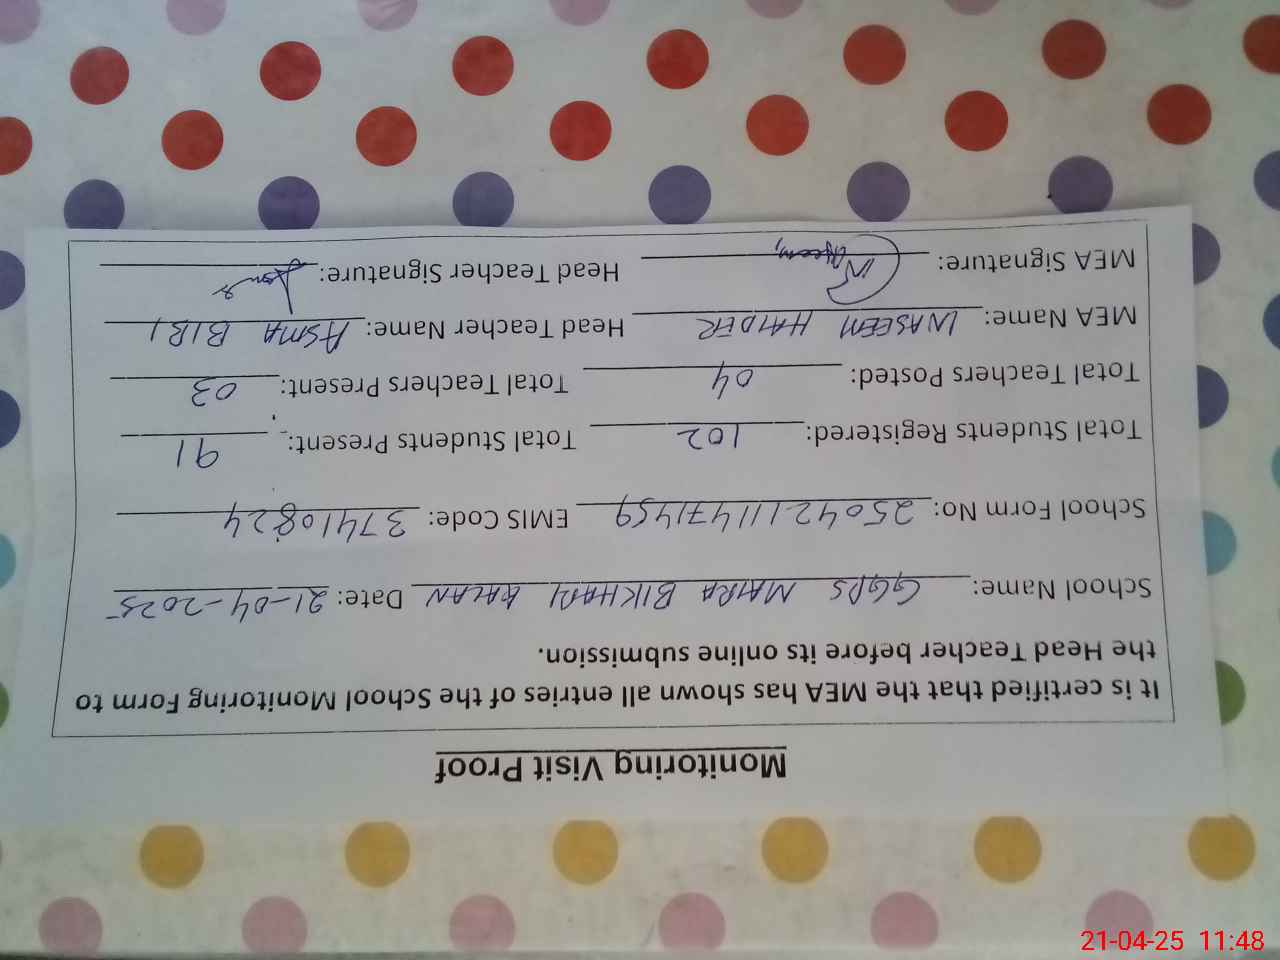 Monitoring Visit Proof
It is certified that the MEA has shown all entries of the School Monitoring Form to
the Head Teacher before its online submission.
School Name: GGPS MAIRA BIKHARI KALAN Date: 21-04-2025
School Form No: 250421111471459 EMIS Code: 37410824
Total Students Registered: 102 Total Students Present: 91
Total Teachers Posted: 04 Total Teachers Present: 03
MEA Name: WASEEM HAIDER Head Teacher Name: ASMA BIBI
MEA Signature: Head Teacher Signature:
21-04-25 11:48